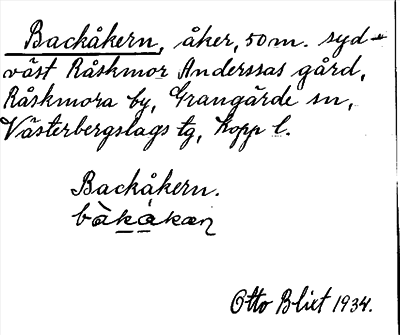 Backåkern, åker, 50 m. syd-
väst Råskmor Anderssas gård,
Råskmora by, Grangärde sn,
Västerbergslags tg, Kopp. l.
Backåkern.
Otto Blixt 1934.